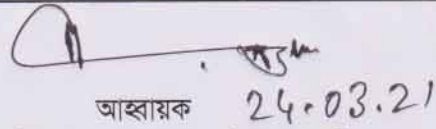 আহ্বায়ক 24.03.21